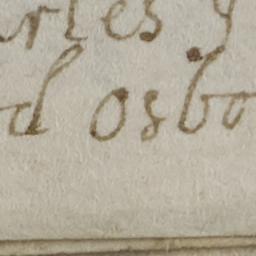 arles y
d osbo